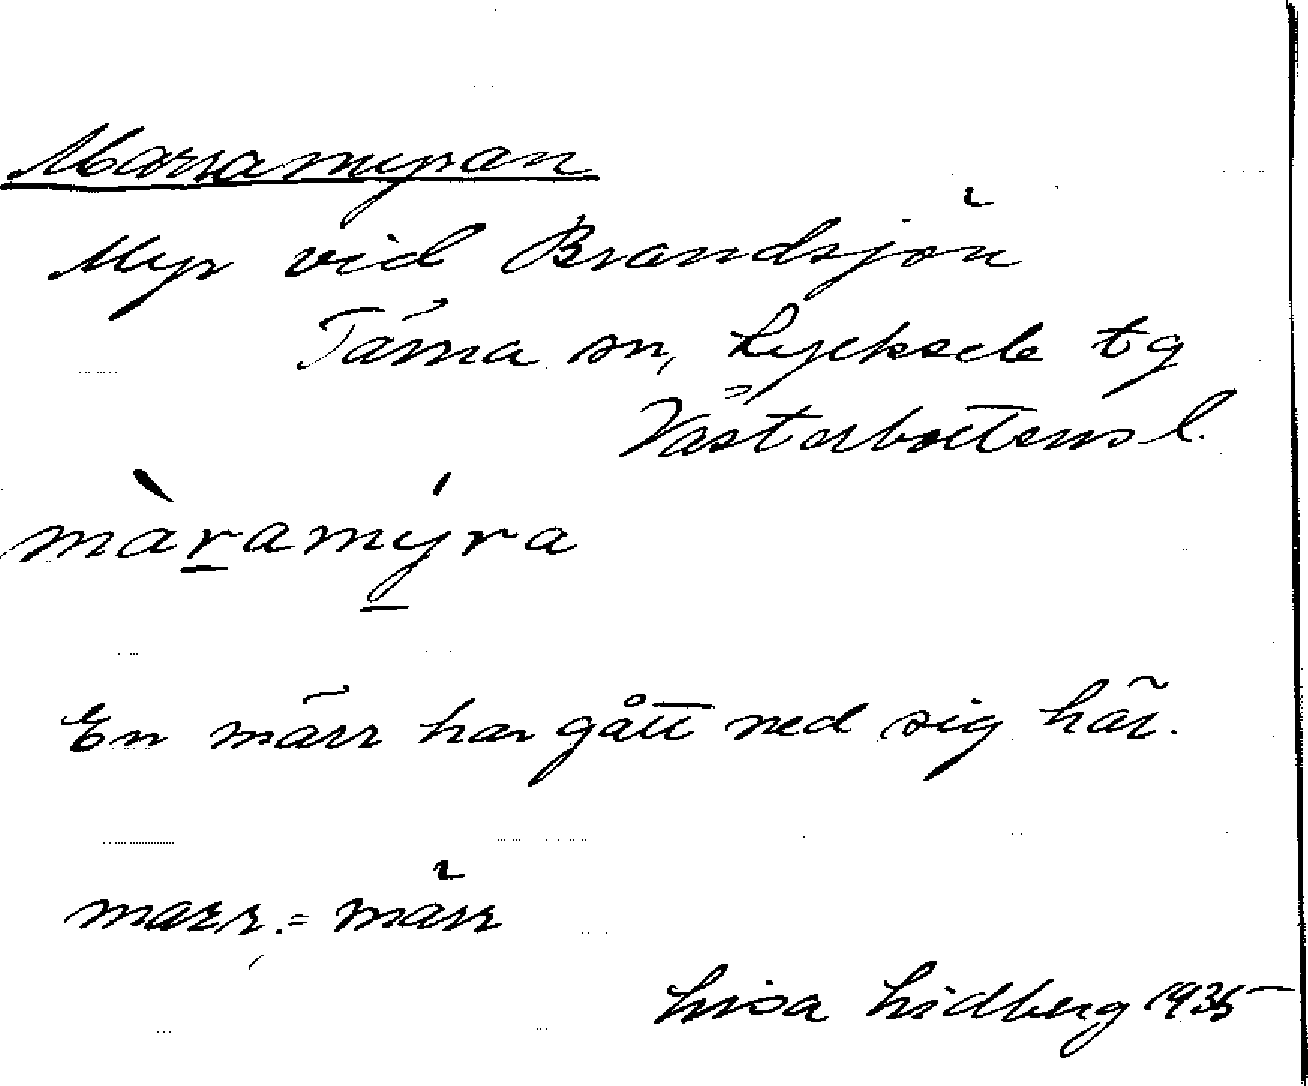 Marramyran
Myr vid Brandsjön
Tärna sn, Lycksele tg
Västerbottens l.
màramýra
En märr har gått ned sig här.
marr. = märr
Lisa Lidberg 1935